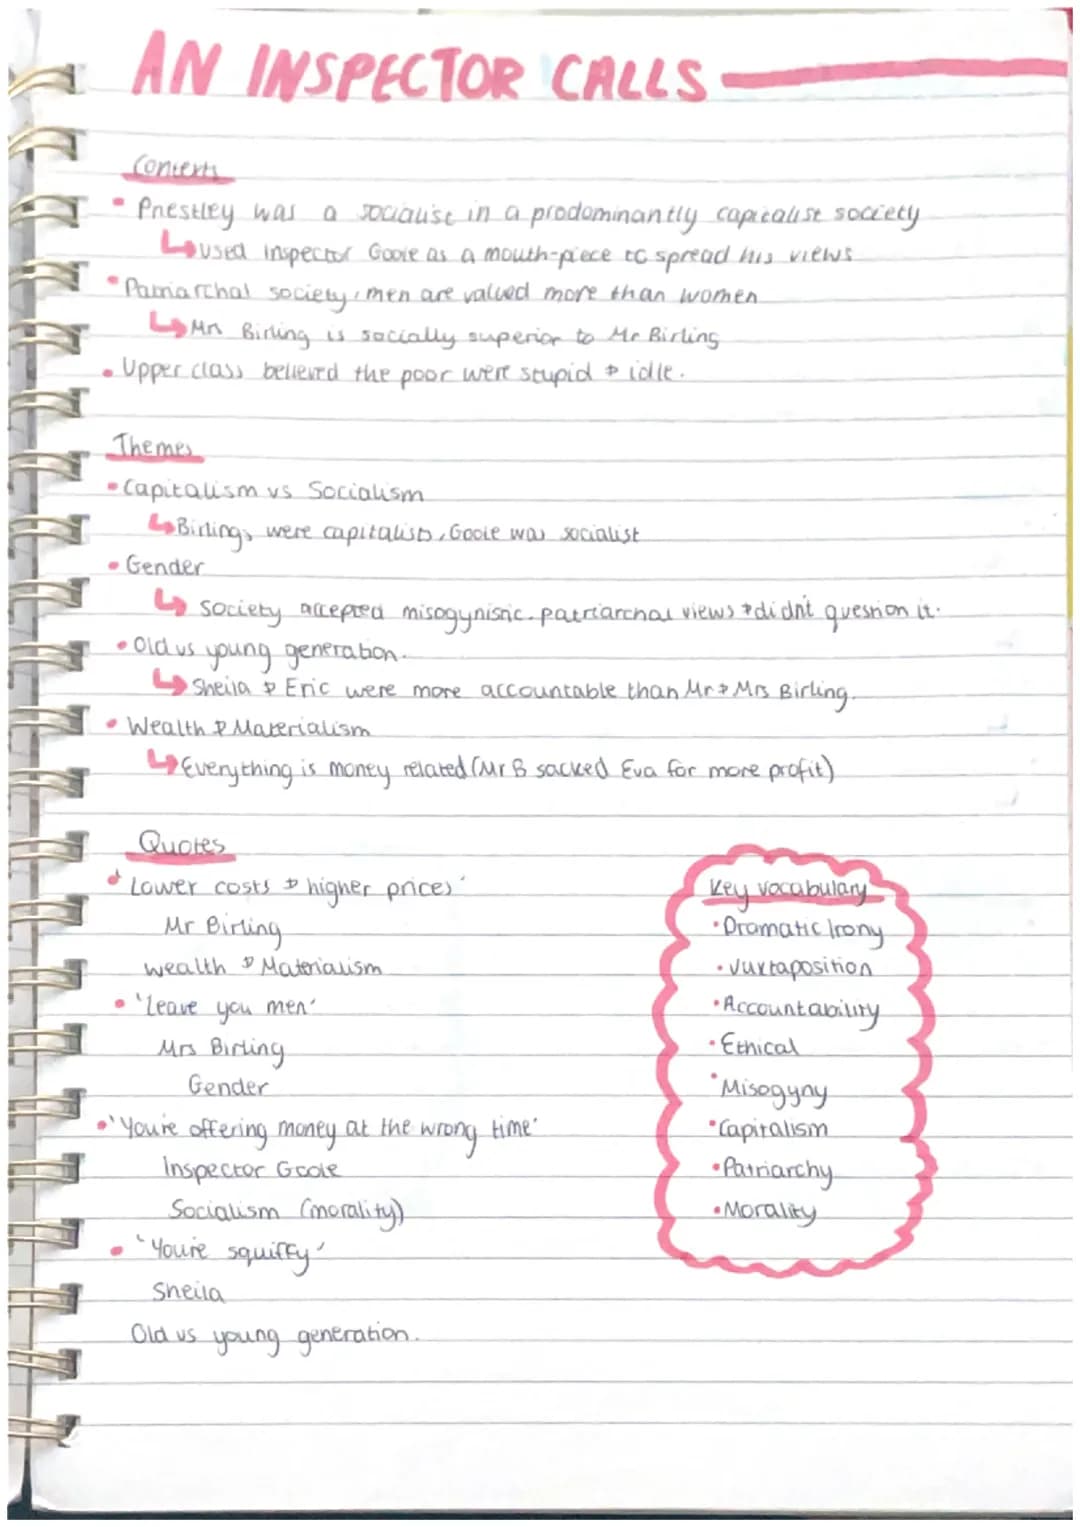 AN INSPECTOR CALLS
Context
• Priestley was a socialist in a prodominantly capitalist society
↳ used Inspector Goole as a mouth-piece to spread his views
• Patriarchal society, men are valued more than women
↳ Mrs Birling is socially superior to Mr Birling
• Upper class believed the poor were stupid & idle.
Themes
• Capitalism vs Socialism
↳ Birlings were capitalists, Goole was socialist
• Gender
↳ Society accepted misogynistic patriarchal views & didn't question it.
• Old vs young generation.
↳ Sheila & Eric were more accountable than Mr & Mrs Birling.
• Wealth & Materialism
↳ Everything is money related (Mr B sacked Eva for more profit)
Quotes
• 'Lower costs & higher prices'
Mr Birling
wealth & Materialism
• 'Leave you men'
Mrs Birling
Gender
• 'You're offering money at the wrong time'
Inspector Goole
Socialism (morality)
• 'You're squiffy'
Sheila
Old vs young generation.
Key vocabulary
• Dramatic Irony
• Juxtaposition
• Accountability
• Ethical
• Misogyny
• Capitalism
• Patriarchy
• Morality